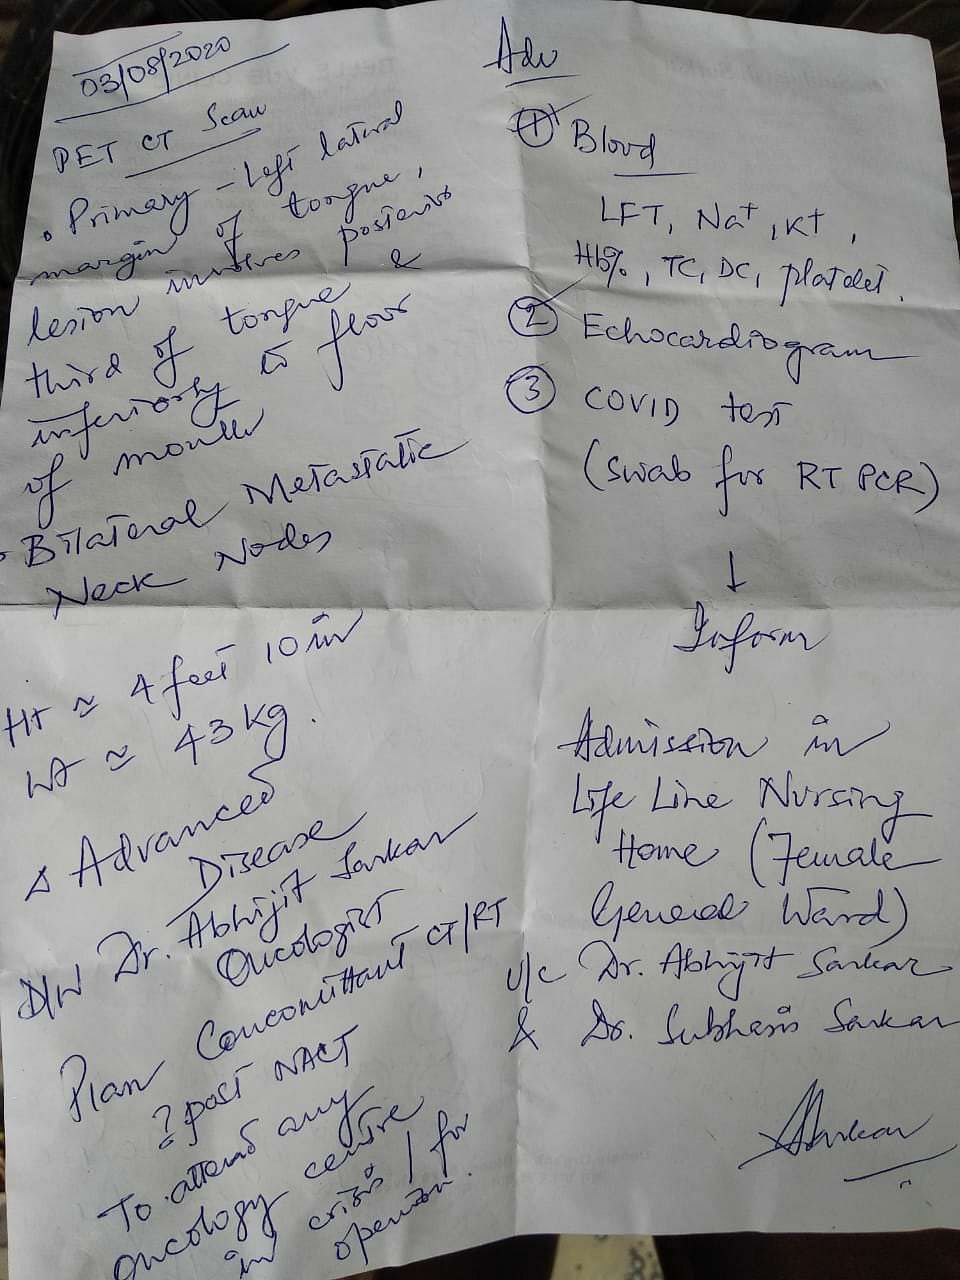 03/08/2020
PET CT Scan
• Primary - Left lateral
margin of tongue,
lesion involves posterior
third of tongue &
inferiorly to floor
of mouth
• Bilateral Metastatic
Neck Nodes
Ht ≈ 4 feet 10 in
Wt ≈ 43 kg.
Δ Advanced
Disease
D/W Dr. Abhijit Sarkar
Oncologist
Plan Concomittant CT/RT
? post NACT
To attend any
oncology centre
in crisis / for
opinion.
Adv
① Blood
LFT, Na+, K+,
Hb%, TC, DC, platelet.
② Echocardiogram
③ COVID test
(swab for RT PCR)
↓
Inform
Admission in
Life Line Nursing
Home (Female
General Ward)
u/c Dr. Abhijit Sarkar
& Dr. Subhasis Sarkar